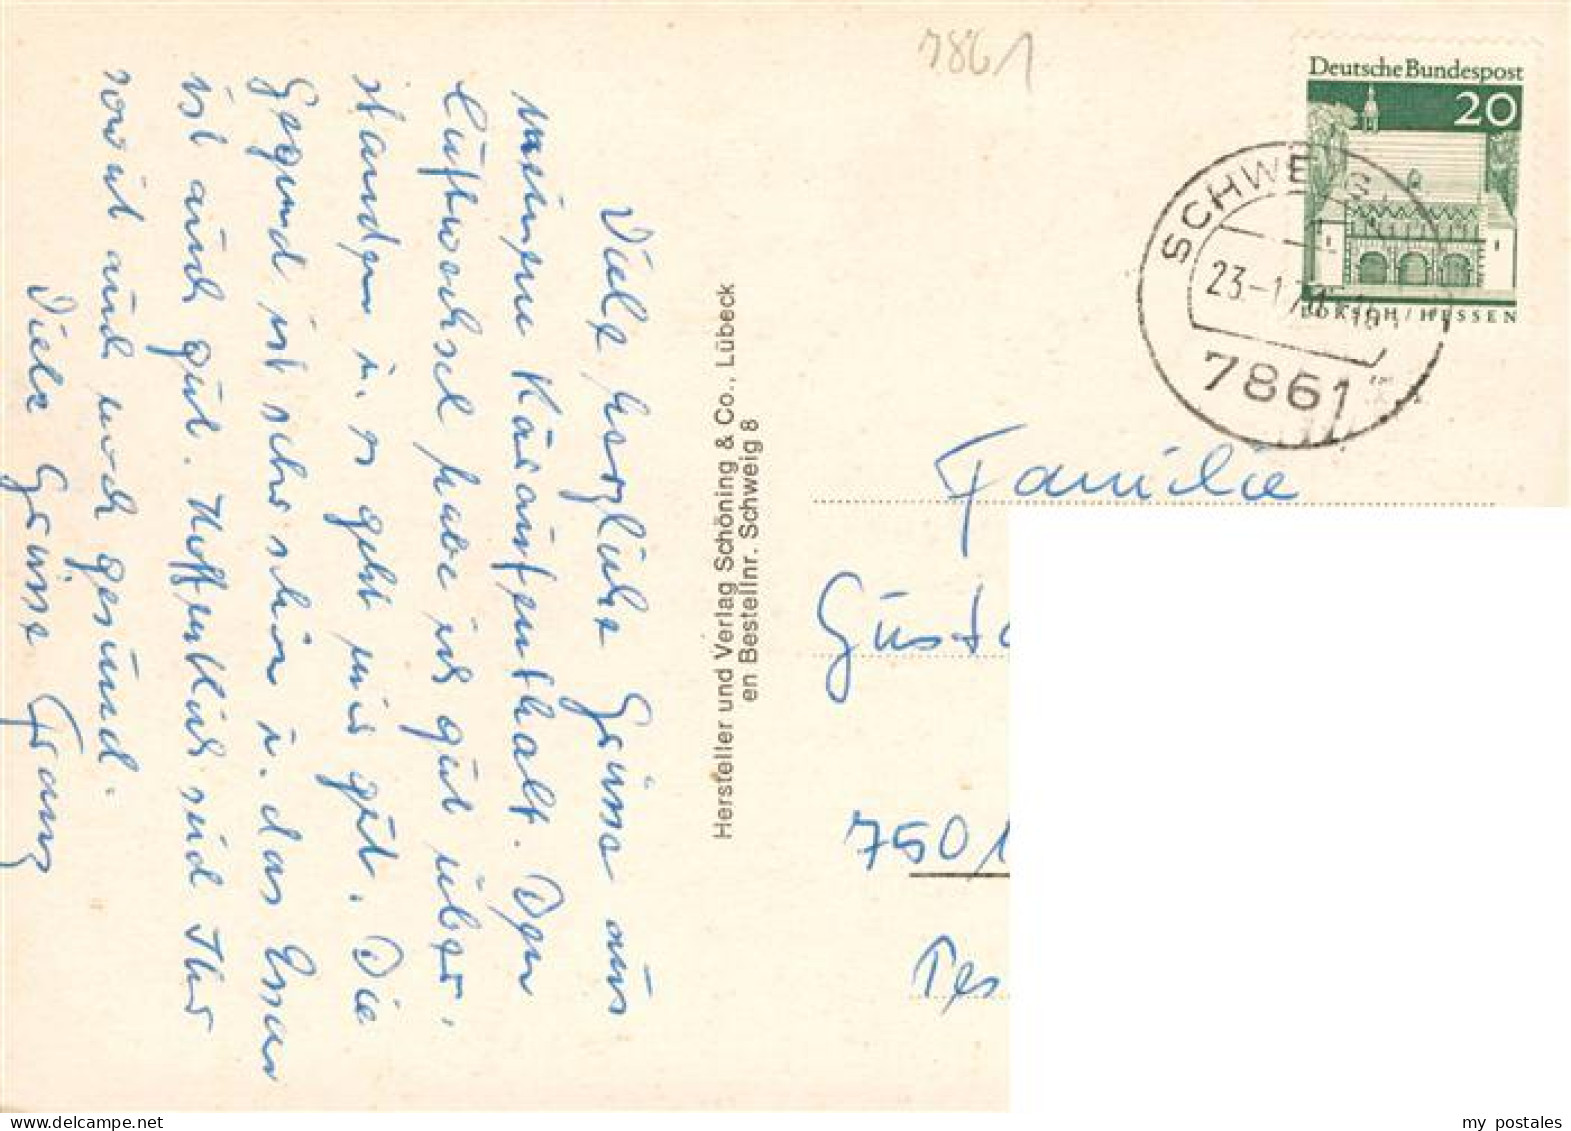 Viele herzliche Grüsse aus
meinem Kuraufenthalt. Den
Luftwechsel habe ich gut über-
standen u. es geht mir gut. Die
Gegend ist sehr schön u. das Essen
ist auch gut. Hoffentlich seid Ihr
soweit auch noch gesund.
Viele Grüsse Franz
Hersteller und Verlag Schöning & Co., Lübeck
en Bestellnr. Schweig 8
7861
Deutsche Bundespost
20
LORSCH / HESSEN
SCHWEIG
23-1.7
7861
Familie
Gusta
7501
Tes
my postales